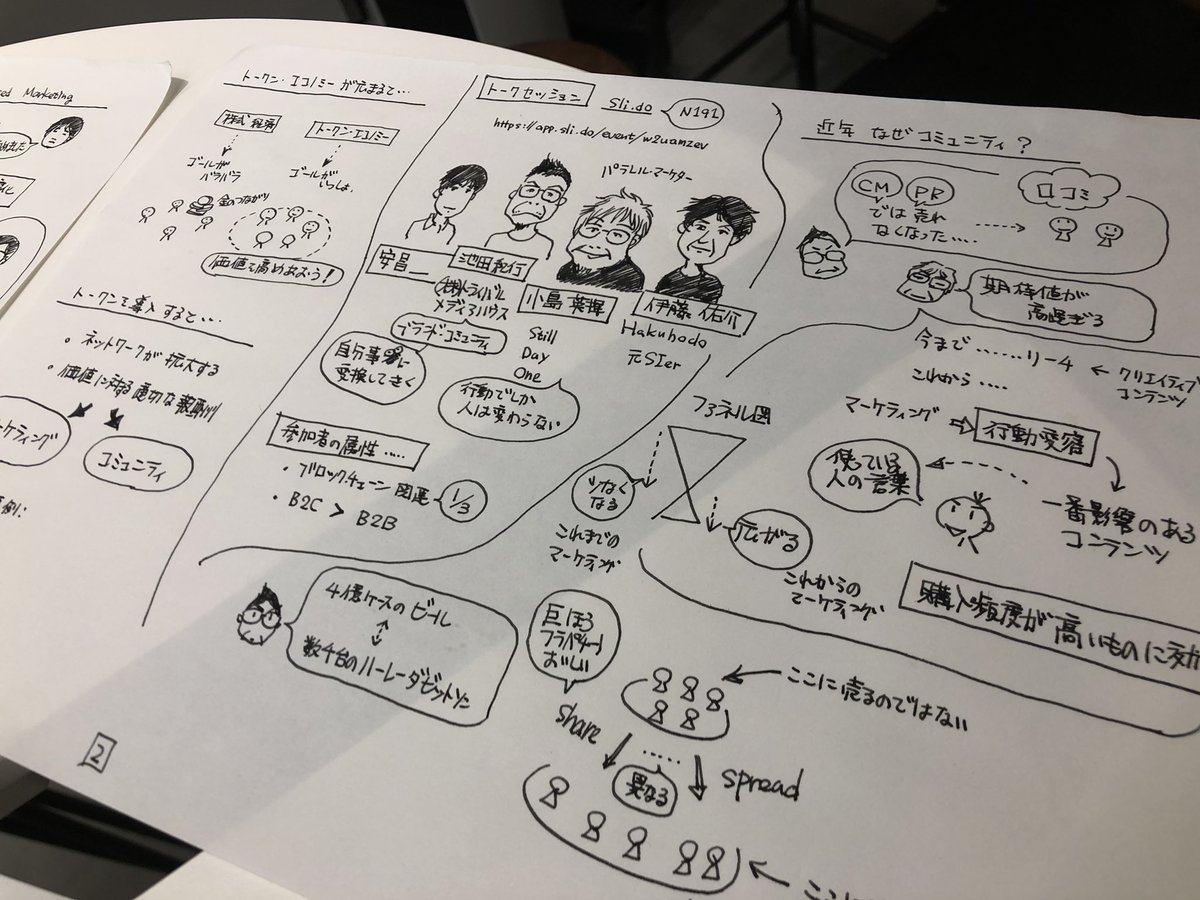 Marketing
トークン・エコノミーが広まると…
株式経済
トークン・エコノミー
ゴールが
バラバラ
ゴールが
いっしょ。
金のつながり
価値を高めあおう!
トークンを導入すると…
・ネットワークが拡大する
・価値に対する適切な
ーケティング
コミュニティ
例:
2
トークセッション
Sli.do
N191
https://app.sli.do/event/w2uanzev
パラレル・マーケター
安昌
池田紀行
(株)トライバル
メディアハウス
ブランドコミュニティ
自分事に
変換してきく
小島英揮
Still
Day
One
行動でしか
人は変わらない
伊藤佑介
Hakuhodo
元SIer
参加者の属性……
・ブロックチェーン関連
1/3
・B2C > B2B
近年 なぜコミュニティ?
CM
PR
では売れ
なくなった….
口コミ
期待値が
高すぎる
今まで ……リーチ ← クリエイティブ
コンテンツ
これから….
マーケティング ⇒ 行動変容
使っている
人の言葉
一番影響のある
コンテンツ
購入頻度が高いものに効
ファネル図
少なく
なる
これまでの
マーケティング
広がる
これからの
マーケティング
4億ケースのビール
数千台のハーレーダビットソン
巨ほう
フラペチーノ
おいしい
share
異なる
spread
ここに売るのではない